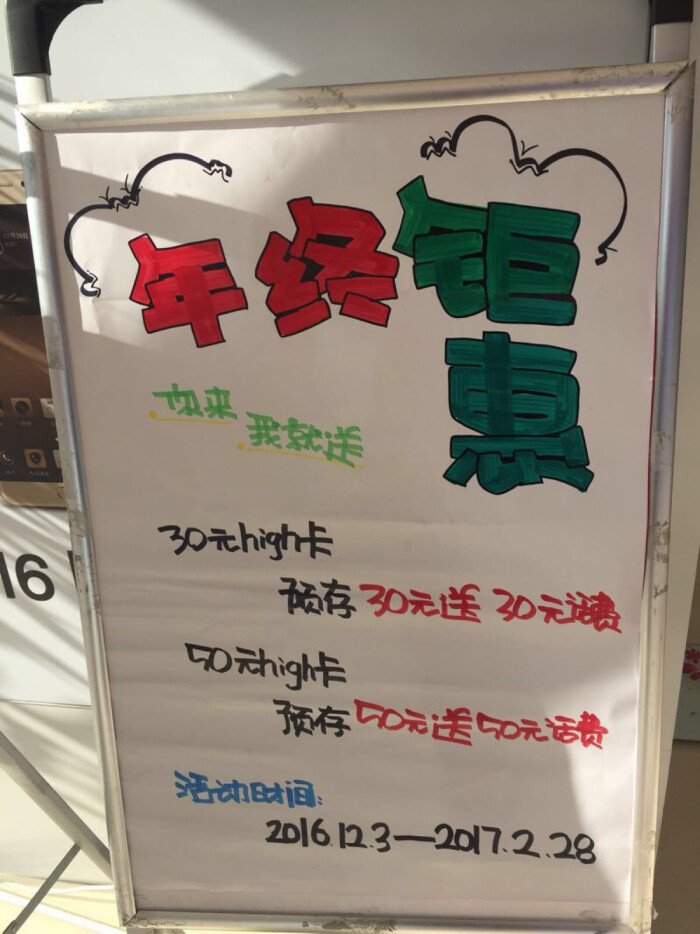 年终钜
惠
你来
我就送
30元high卡
预存30元送30元话费
50元high卡
预存50元送50元话费
活动时间:
2016.12.3—2017.2.28
16